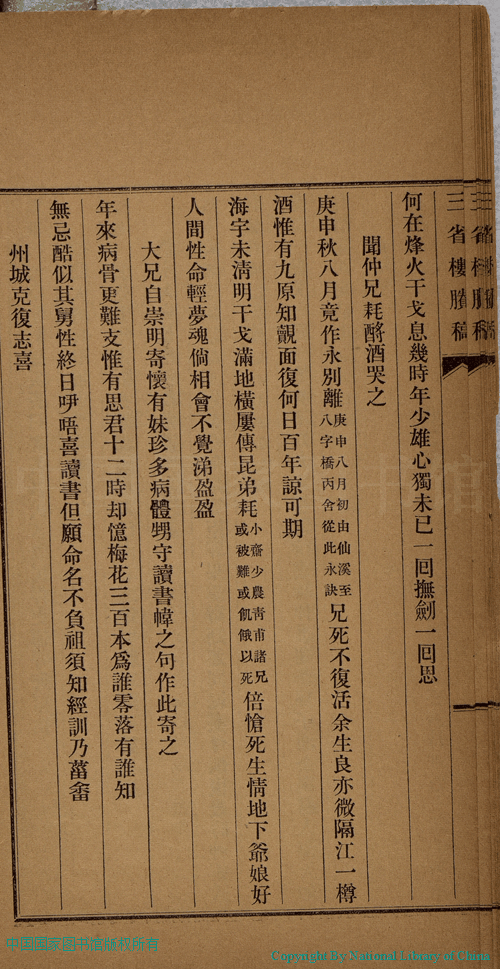 三省樓賸稿
何在烽火干戈息幾時年少雄心獨未已一回撫劍一回思
聞仲兄耗酹酒哭之
庚申秋八月竟作永別離庚申八月初由仙溪至八字橋丙舍從此永訣兄死不復活余生良亦微隔江一樽
酒惟有九原知覿面復何日百年諒可期
海宇未清明干戈滿地橫屢傳昆弟耗小齋少農靑甫諸兄或被難或飢餓以死倍愴死生情地下爺娘好
人間性命輕夢魂倘相會不覺涕盈盈
大兄自崇明寄懷有妹珍多病體甥守讀書幃之句作此寄之
年來病骨更難支惟有思君十二時却憶梅花三百本爲誰零落有誰知
無忌酷似其舅性終日咿唔喜讀書但願命名不負祖須知經訓乃菑畬
州城克復志喜
中国国家图书馆版权所有
Copyright By National Library of China